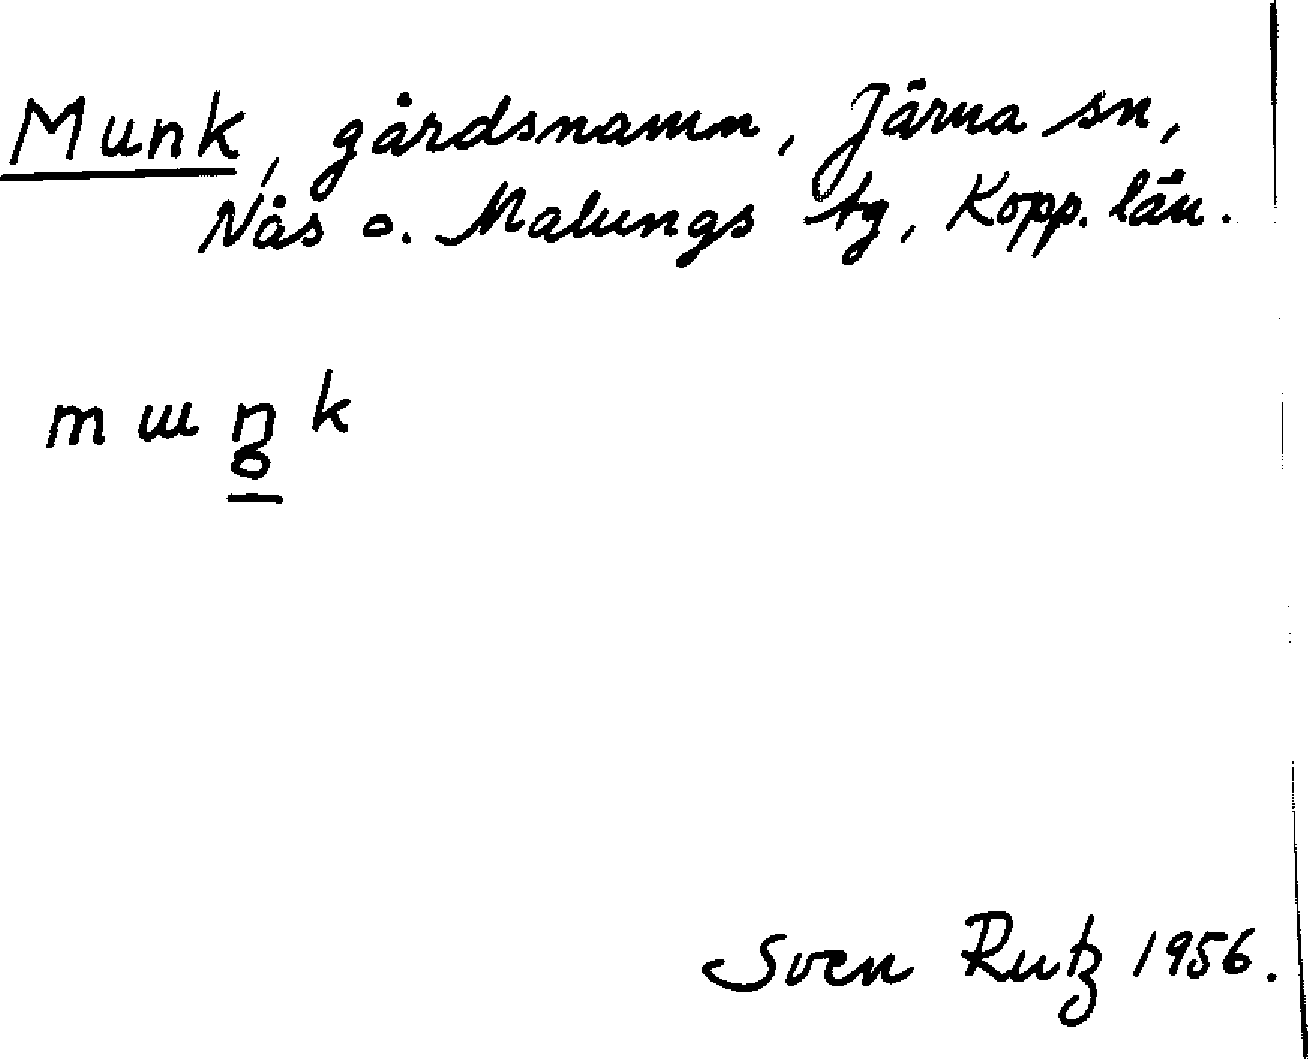 Munk, gårdsnamn, Järna sn,
Nås o. Malungs tg, Kopp. län.
mɯŋ̥k
Sven Rutz 1956.